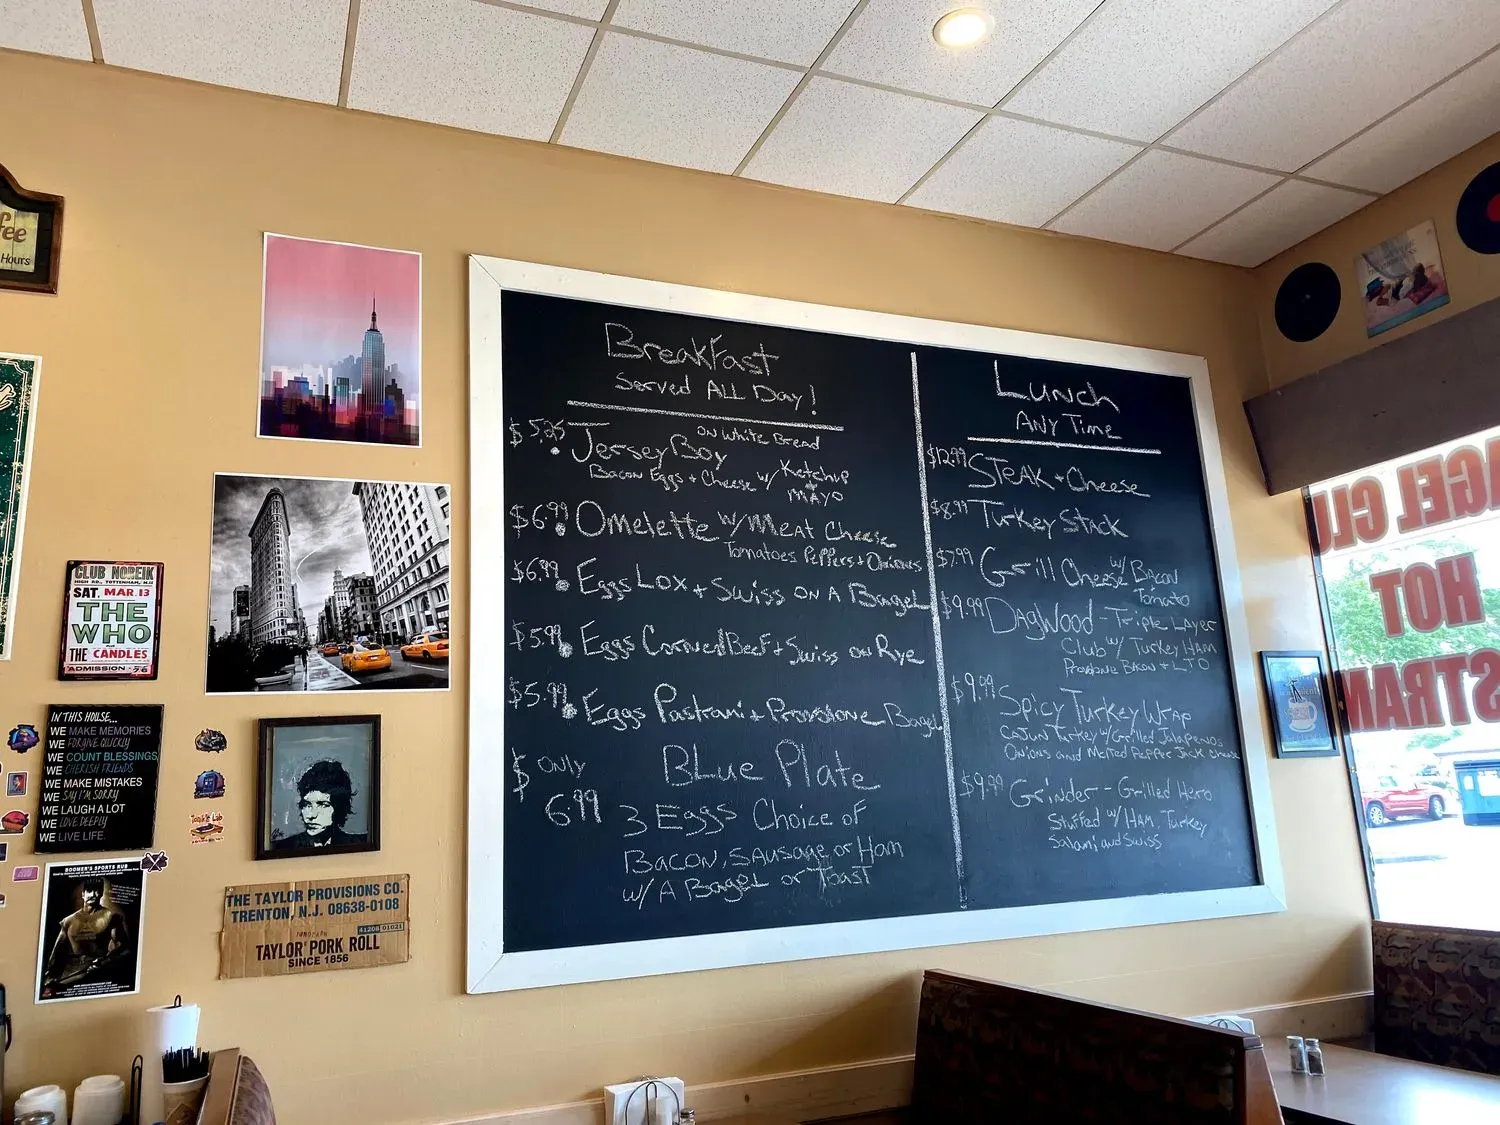 fee
Hours
CLUB NOREIK
HIGH RD., TOTTENHAM, N.15
SAT. MAR. 13
THE
WHO
PLUS
THE CANDLES
ADMISSION - 7/6
IN THIS HOUSE...
WE MAKE MEMORIES
WE FORGIVE QUICKLY
WE COUNT BLESSINGS
WE CHERISH FRIENDS
WE MAKE MISTAKES
WE SAY I'M SORRY
WE LAUGH A LOT
WE LOVE DEEPLY
WE LIVE LIFE.
BOOMER'S SPORTS RUB
THE TAYLOR PROVISIONS CO.
TRENTON, N.J. 08638-0108
41208 01021
TAYLOR PORK ROLL
SINCE 1856
BreakFast
Served ALL Day!
$5.25 JerseyBoy ON White Bread
Bacon Eggs + Cheese w/ Ketchup
+ MAYO
$6.99 Omelette w/ Meat Cheese
Tomatoes Peppers + Onions
$6.99 Eggs Lox + Swiss ON A Bagel
$5.99 Eggs Corned Beef + Swiss on Rye
$5.99 Eggs Pastrami + Provolone Bagel
$ ONLY
6.99
BLue Plate
3 Eggs Choice of
Bacon, Sausage or Ham
w/ A Bagel or Toast
Lunch
ANY Time
$12.99 STEAK + Cheese
$8.99 Turkey Stack
$7.99 Grill Cheese w/ Bacon
Tomato
$9.99 DagWood - Triple Layer
Club w/ Turkey HAM
Provolone Bacon + LTO
$9.99 Spicy Turkey Wrap
Cajun Turkey w/ Grilled Jalapenos
Onions and Melted Pepper Jack Cheese
$9.99 Grinder - Grilled Hero
Stuffed w/ HAM, Turkey
Salami and Swiss
AGEL CLU
HOT
STRAM